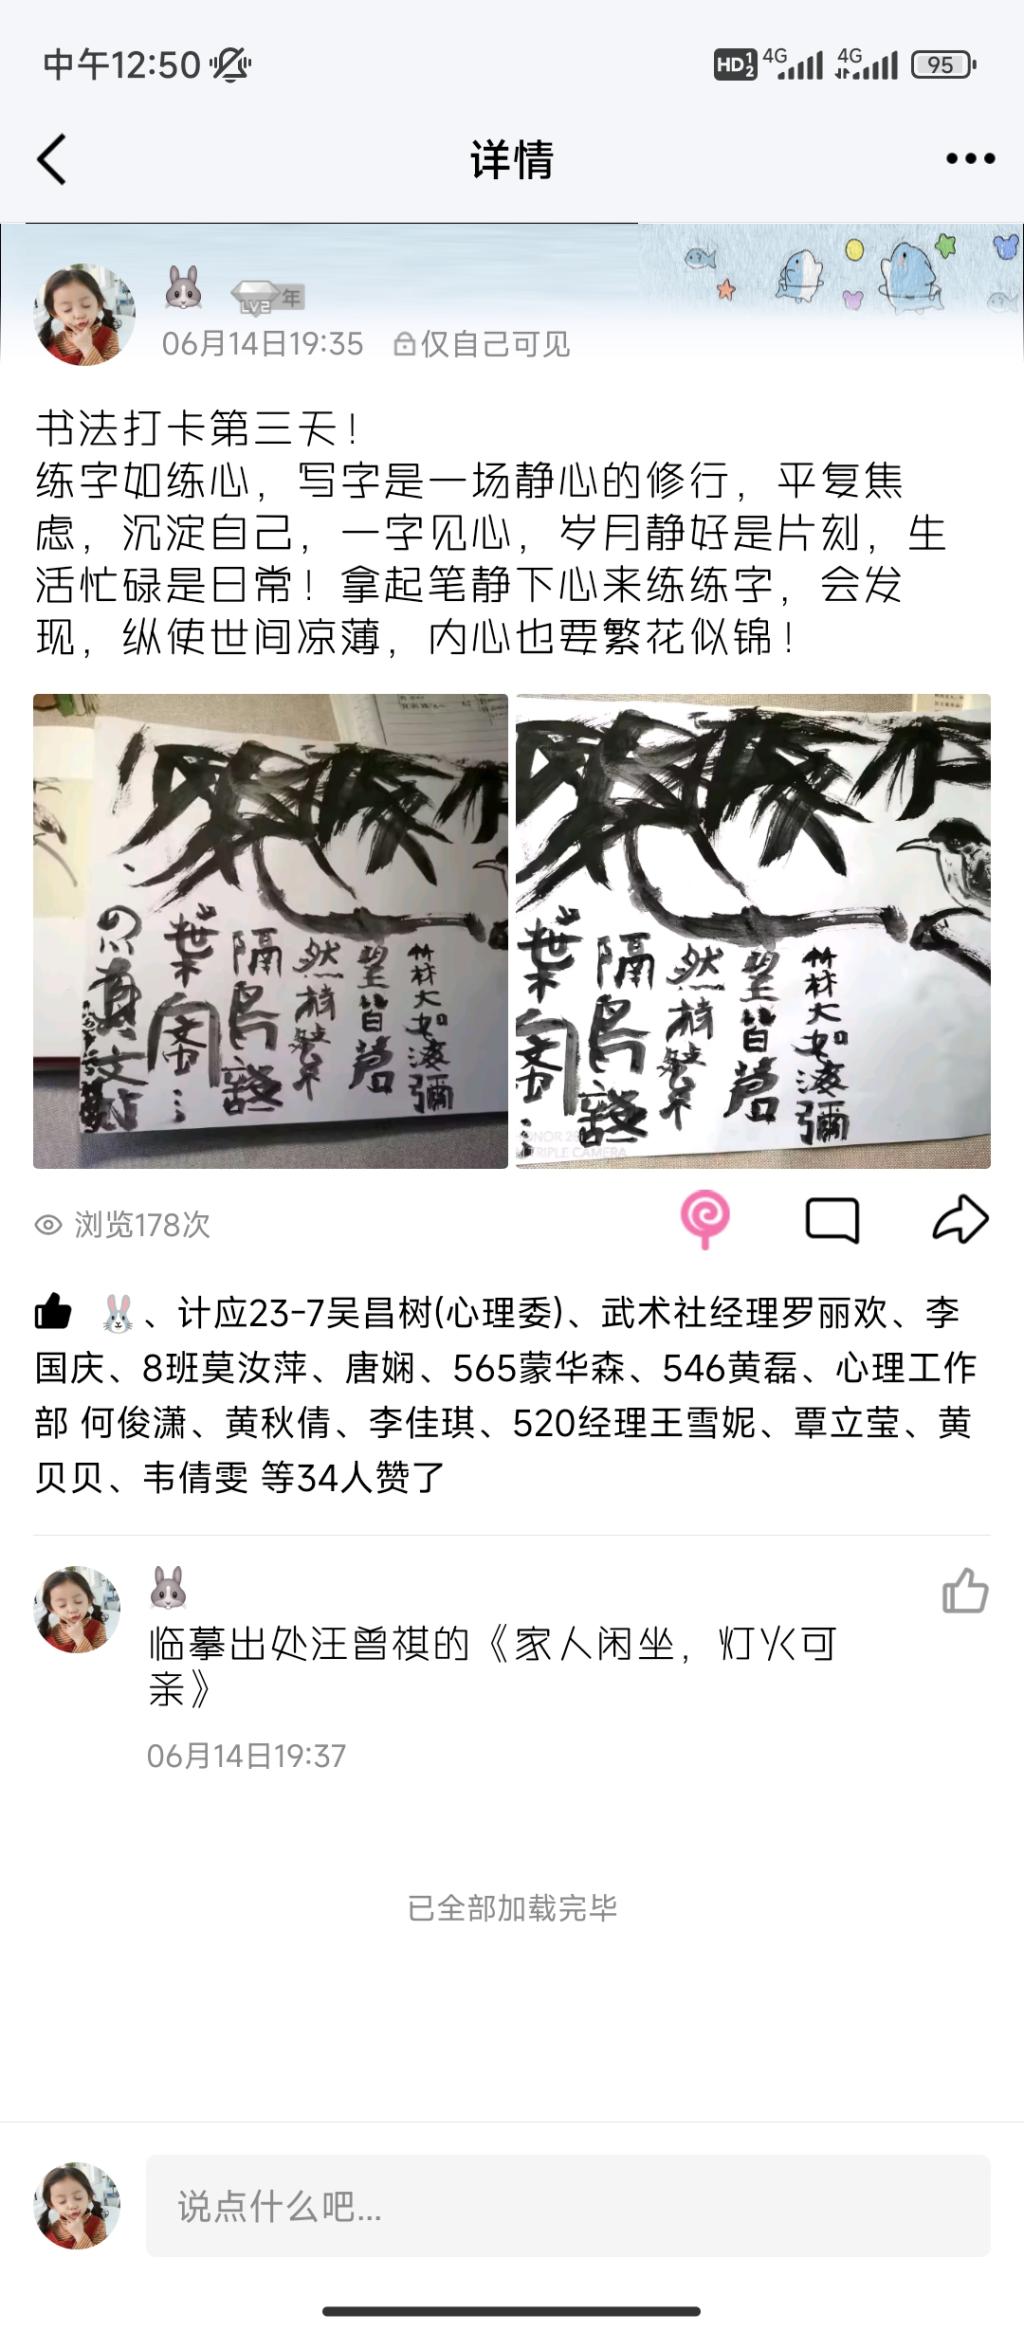 中午12:50
HD 1 2 4G 4G 95
详情
LV2 年
06月14日19:35 仅自己可见
书法打卡第三天！
练字如练心，写字是一场静心的修行，平复焦
虑，沉淀自己，一字见心，岁月静好是片刻，生
活忙碌是日常！拿起笔静下心来练练字，会发
现，纵使世间凉薄，内心也要繁花似锦！
竹林大如海彌
望皆蒼
然
隔鳥
葉
竹林大如海彌
望皆蒼
然
隔鳥
葉
TRIPLE CAMERA
浏览178次
、计应23-7吴昌树(心理委)、武术社经理罗丽欢、李
国庆、8班莫汝萍、唐娴、565蒙华森、546黄磊、心理工作
部 何俊潇、黄秋倩、李佳琪、520经理王雪妮、覃立莹、黄
贝贝、韦倩雯 等34人赞了
临摹出处汪曾祺的《家人闲坐，灯火可
亲》
06月14日19:37
已全部加载完毕
说点什么吧...